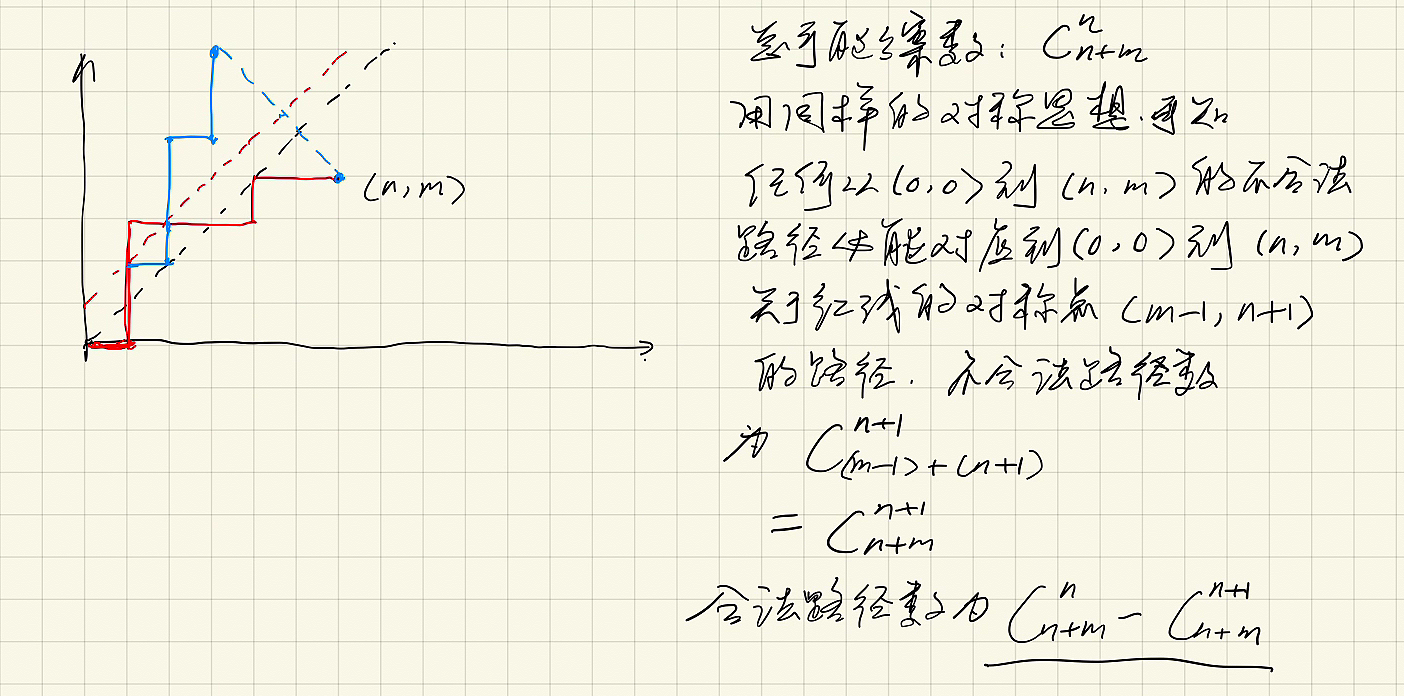 总可能答案数: C_{n+m}^{n}
用同样的对称思想.可知
任何从(0,0)到(n,m)的不合法
路径都能对应到(0,0)到(n,m)
关于红线的对称点(m-1,n+1)
的路径.不合法路径数
为 C_{(m-1)+(n+1)}^{n+1}
= C_{n+m}^{n+1}
合法路径数为 C_{n+m}^{n} - C_{n+m}^{n+1}
(n,m)